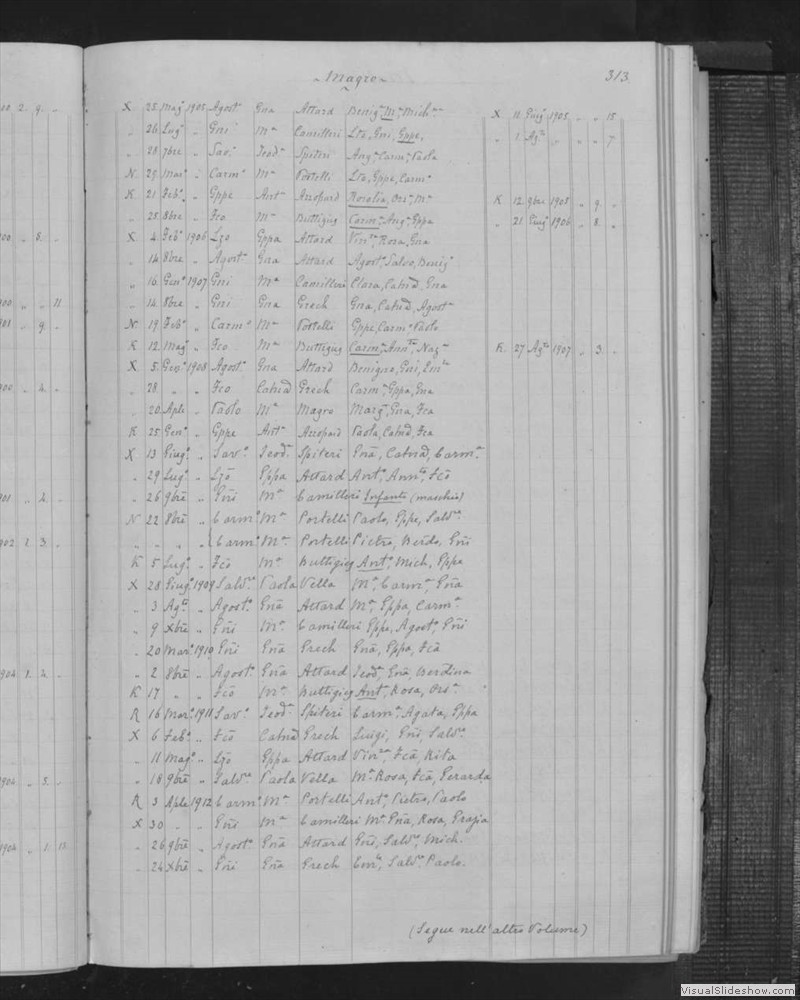 Magro 313
X 25 Mag° 1905 Agost° Gna Attard Benig° Mª Mich X 11 Giug° 1905 " " 15
" 26 Lug° " Gni Mª Camilleri Lzo, Gni, Gppe, " 1 Ag° " " " 7
" 28 7bre " Sav° Teodª Spiteri Ang° Carmª Paola
N 29 Mar° " Carm° Mª Portelli Lzo, Gppe, Carm°
K 21 Feb° " Gppe Antª Azzopard Rosalia, Ors° Mª K 12 9bre 1905 " 9 "
" 25 8bre " Fco Mª Buttigieg Carm° Ang° Gppa " 21 Giug° 1906 " 8 "
X 4 Feb° 1906 Lzo Gppa Attard Vinª Rosa, Gna
" 14 8bre " Agost° Gna Attard Agost° Salvo, Benig°
" 16 Gen° 1907 Gni Mª Camilleri Clara, Catnª, Gna
" 14 8bre " Gni Gna Grech Gna, Catnª, Agost°
N 19 Feb° " Carm° Mª Portelli Gppe, Carm° Paolo
K 12 Mag° " Fco Mª Buttigieg Carm° Annta, Naz° K 27 Ag° 1907 " 3 "
X 5 Gen° 1908 Agost° Gna Attard Benigno, Gni, Emle
" 28 " " Fco Catnª Grech Carmª Gppa, Gna
" 20 Aple " Paolo Mª Magro Margª, Gna, Fca
K 25 Gen° " Gppe Antª Azzopard Paola, Catnª, Fca
X 13 Giug° " Sav° Teodª Spiteri Gna, Catnª, Carmª
" 29 Lug° " Lzo Gppa Attard Ant° Annto, Fco
" 26 9bre " Gni Mª Camilleri Infante (maschio)
N 22 8bre " Carm° Mª Portelli Paolo, Gppe, Salvre
" " " " Carm° Mª Portelli Pietro, Berdo, Gni
K 5 Lug° " Fco Mª Buttigieg Ant° Mich, Gppe
X 28 Giug° 1909 Salvre Paola Vella Mª Carmª, Gna
" 3 Ag° " Agost° Gna Attard Mª Gppa, Carmª
" 9 Xbre " Gni Mª Camilleri Gppe, Agost° Gni
" 20 Mar° 1910 Gni Gna Grech Gna, Gppa, Fca
" 2 8bre " Agost° Gna Attard Teodª, Gna, Berdina
K 17 " " Fco Mª Buttigieg Antª, Rosa, Orsª
R 16 Mar° 1911 Sav° Teodª Spiteri Carmª, Agata, Gppa
X 6 Feb° " Fco Catnª Grech Luigi, Gni, Salvre
" 11 Mag° " Lzo Gppa Attard Vinza, Fca, Rita
" 18 9bre " Salvre Paola Vella Mª Rosa, Fca, Gerarda
R 3 Aple 1912 Carm° Mª Portelli Ant° Pietro, Paolo
X 30 " " Gni Mª Camilleri Mª Gna, Rosa, Grazia
" 26 9bre " Agost° Gna Attard Gni, Salvre, Mich.
" 24 Xbre " Gni Gna Grech Emle, Salvre Paolo.
(Segue nell'altro Volume)
VisualSlideshow.com